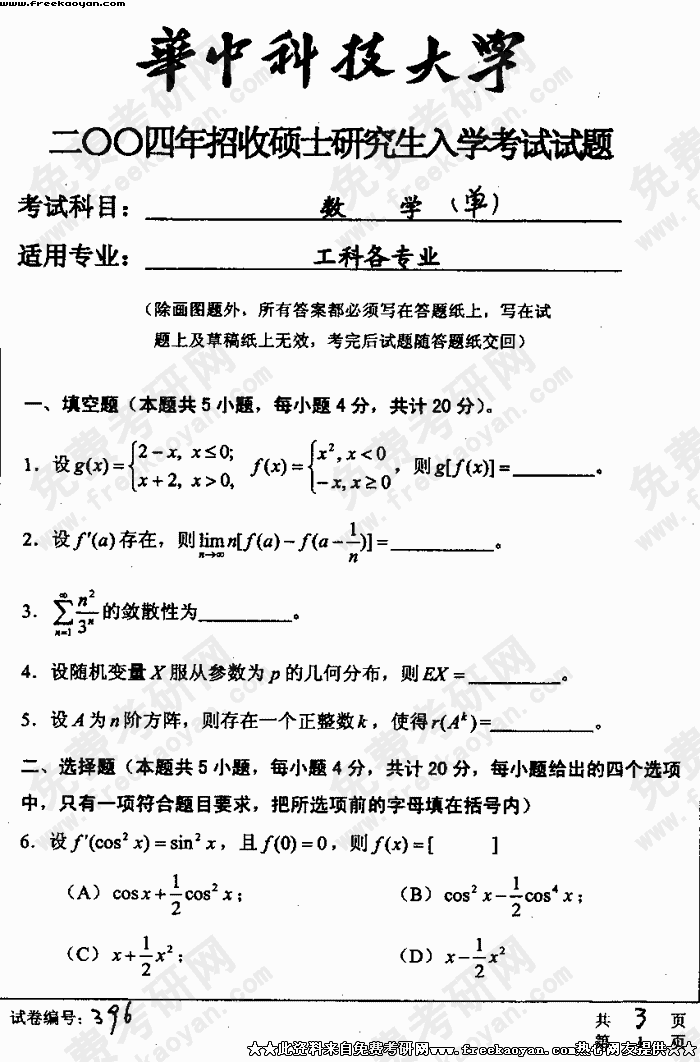 www.freekaoyan.com
華中科技大学
二〇〇四年招收硕士研究生入学考试试题
考试科目： 数 学（单）
适用专业： 工科各专业
（除画图题外，所有答案都必须写在答题纸上，写在试
题上及草稿纸上无效，考完后试题随答题纸交回）
一、填空题（本题共 5 小题，每小题 4 分，共计 20 分）。
1．设 g(x)={2−x, x≤0; x+2, x>0, f(x)={x², x<0 −x, x≥0，则 g[f(x)]=________。
2．设 f′(a) 存在，则 lim n→∞ n[f(a)−f(a−1/n)]=________。
3．∑ n=1 ∞ n²/3ⁿ 的敛散性为________。
4．设随机变量 X 服从参数为 p 的几何分布，则 EX =________。
5．设 A 为 n 阶方阵，则存在一个正整数 k，使得 r(Aᵏ)=________。
二、选择题（本题共 5 小题，每小题 4 分，共计 20 分，每小题给出的四个选项
中，只有一项符合题目要求，把所选项前的字母填在括号内）
6．设 f′(cos² x)=sin² x，且 f(0)=0，则 f(x)=[ ]
（A）cos x+1/2 cos² x； （B）cos² x−1/2 cos⁴ x；
（C）x+1/2 x²； （D）x−1/2 x²
试卷编号：396 共 3 页
第 1 页
★★此资料来自免费考研网www.freekaoyan.com热心网友提供★★